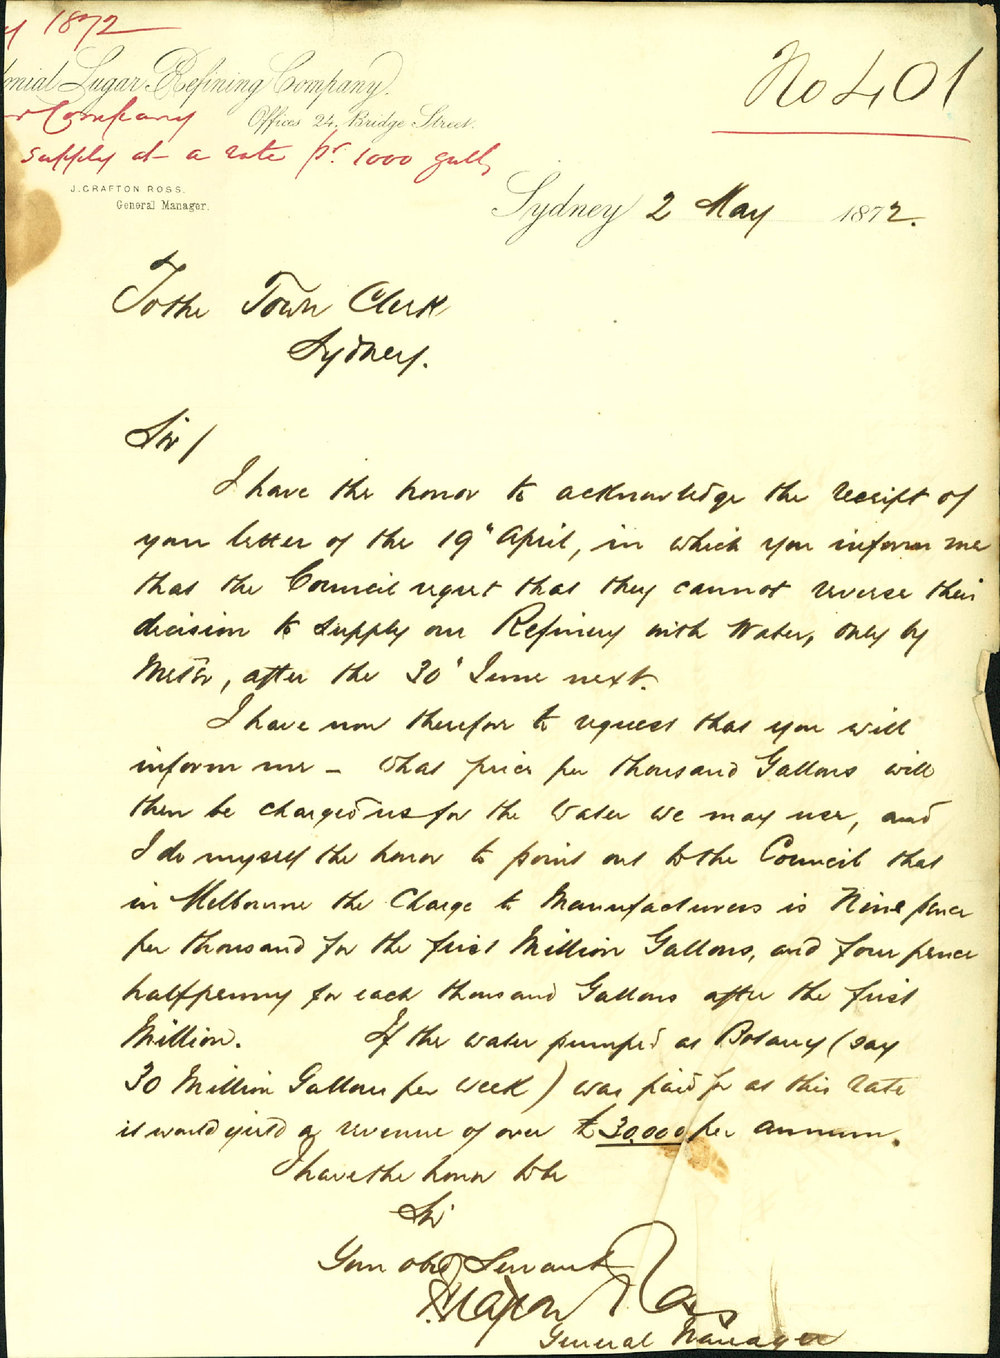 y 1872
onial Sugar Refining Company.
Company
Offices 24, Bridge Street.
No 401
supply at a rate pr. 1000 galls
J. GRAFTON ROSS.
General Manager.
Sydney 2 May 1872.
To the Town Clerk
Sydney.
Sir /
I have the honor to acknowledge the receipt of
your letter of the 19" April, in which you inform me
that the Council regret that they cannot reverse their
decision to supply our Refinery with Water, only by
Meter, after the 30' June next.
I have now therefor to request that you will
inform me - what price per thousand Gallons will
then be charged us for the Water we may use, and
I do myself the honor to point out to the Council that
in Melbourne the Charge to Manufacturers is Nine pence
per thousand for the first Million Gallons, and four pence
halfpenny for each thousand Gallons after the first
Million. If the water pumped at Botany (say
30 Million Gallons per week) was paid for at this rate
it would yield a revenue of over £30,000 per annum.
I have the honor to be
Sir
Your obed Servant
J. Grafton Ross
General Manager